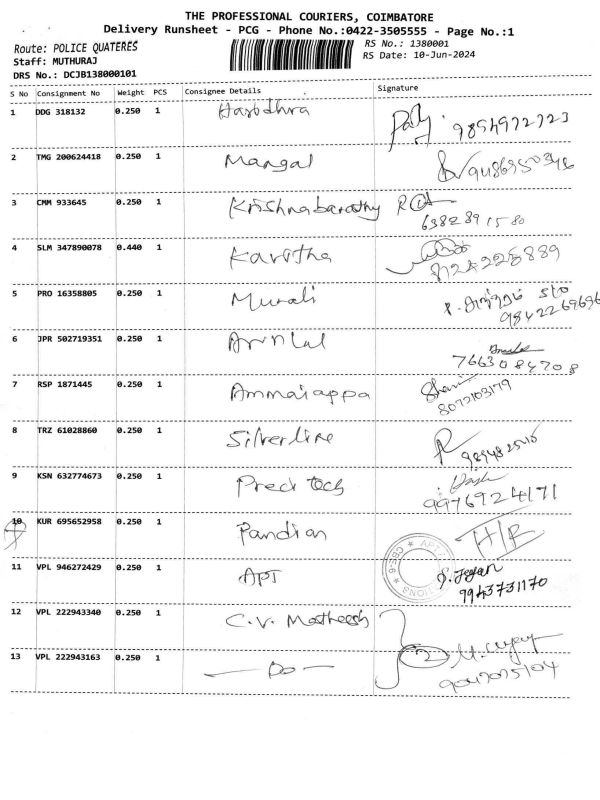 THE PROFESSIONAL COURIERS, COIMBATORE
Delivery Runsheet - PCG - Phone No.:0422-3505555 - Page No.:1
Route: POLICE QUATERES
Staff: MUTHURAJ
DRS No.: DCJB138000101
RS No.: 1380001
RS Date: 10-Jun-2024
S No Consignment No Weight PCS Consignee Details Signature
1 DDG 318132 0.250 1
2 TMG 200624418 0.250 1 Mangal
3 CMM 933645 0.250 1 Krishnabarathy
6382891580
4 SLM 347890078 0.440 1 Kavitha
5 PRO 16358805 0.250 1 Murali
9842269696
6 JPR 502719351 0.250 1
7663084708
7 RSP 1871445 0.250 1 Ammaiappa
8072103179
8 TRZ 61028860 0.250 1 Silverline
9 KSN 632774673 0.250 1 Preci tech
9976924171
10 KUR 695652958 0.250 1 Pandian
11 VPL 946272429 0.250 1 APT S. Jegan
9943731170
12 VPL 222943340 0.250 1 C.V. Matheesh
13 VPL 222943163 0.250 1 — Do —